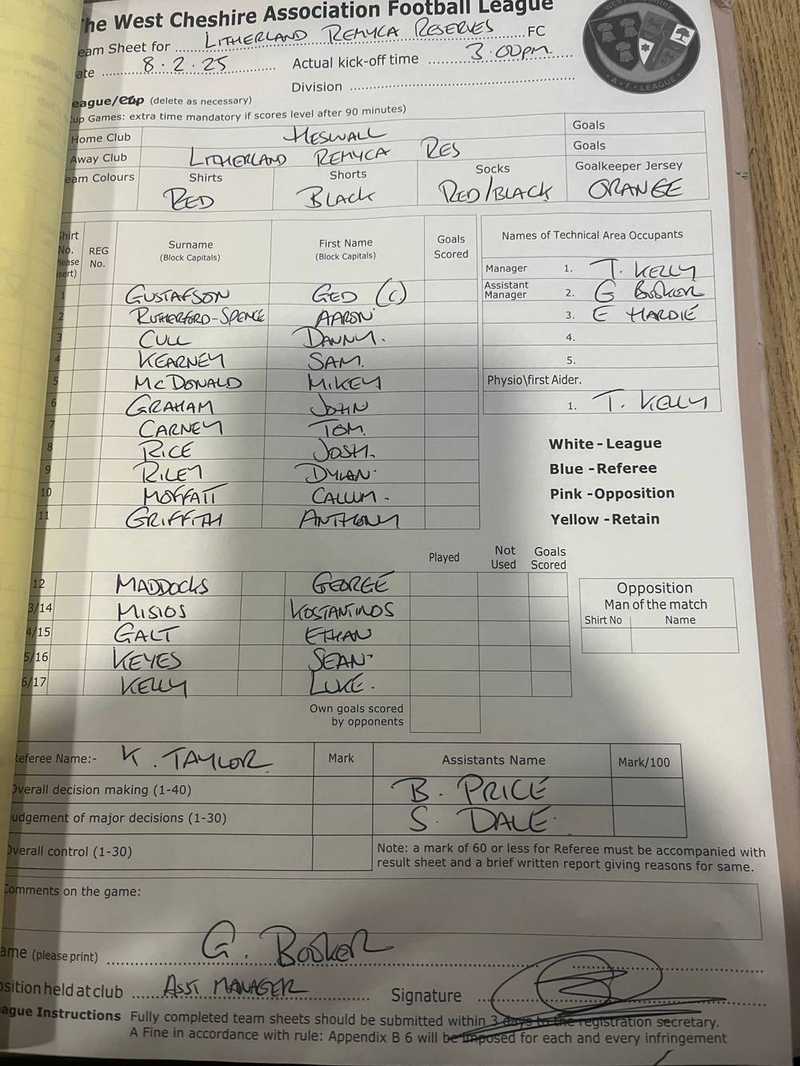 The West Cheshire Association Football League
eam Sheet for LITHERLAND REMYCA RESERVES FC
ate 8.2.25 Actual kick-off time 3.00pm
Division
eague/Cup (delete as necessary)
up Games: extra time mandatory if scores level after 90 minutes)
Home Club HESWALL Goals
Away Club LITHERLAND REMYCA RES Goals
eam Colours Shirts RED Shorts BLACK Socks RED/BLACK Goalkeeper Jersey ORANGE
Shirt No. REG No. Surname (Block Capitals) First Name (Block Capitals) Goals Scored
1 GUSTAFSON GED (C)
2 RUTHERFORD-SPENCE AARON
3 CULL DANNY.
4 KEARNEY SAM.
5 McDONALD MIKEY
6 GRAHAM JOHN
7 CARNEY TOM.
8 RICE JOSH.
9 RILEY DYLAN.
10 MOFFATT CALLUM.
11 GRIFFITH ANTHONY
Names of Technical Area Occupants
Manager 1. T. KELLY
Assistant Manager 2. G BOOKER
3. E HARDIE
4.
5.
Physio\first Aider.
1. T. KELLY
White - League
Blue - Referee
Pink - Opposition
Yellow - Retain
Played Not Used Goals Scored
12 MADDOCKS GEORGE
3/14 MISIOS KOSTANTINOS
4/15 GALT ETHAN
5/16 KEYES SEAN
6/17 KELLY LUKE.
Own goals scored by opponents
Opposition
Man of the match
Shirt No Name
Referee Name:- K. TAYLOR Mark Assistants Name Mark/100
Overall decision making (1-40) B. PRICE
udgement of major decisions (1-30) S. DALE
Overall control (1-30)
Note: a mark of 60 or less for Referee must be accompanied with
result sheet and a brief written report giving reasons for same.
Comments on the game:
ame (please print) G. BOOKER
osition held at club ASST MANAGER Signature
ague Instructions Fully completed team sheets should be submitted within 3 days to the registration secretary.
A Fine in accordance with rule: Appendix B 6 will be imposed for each and every infringement